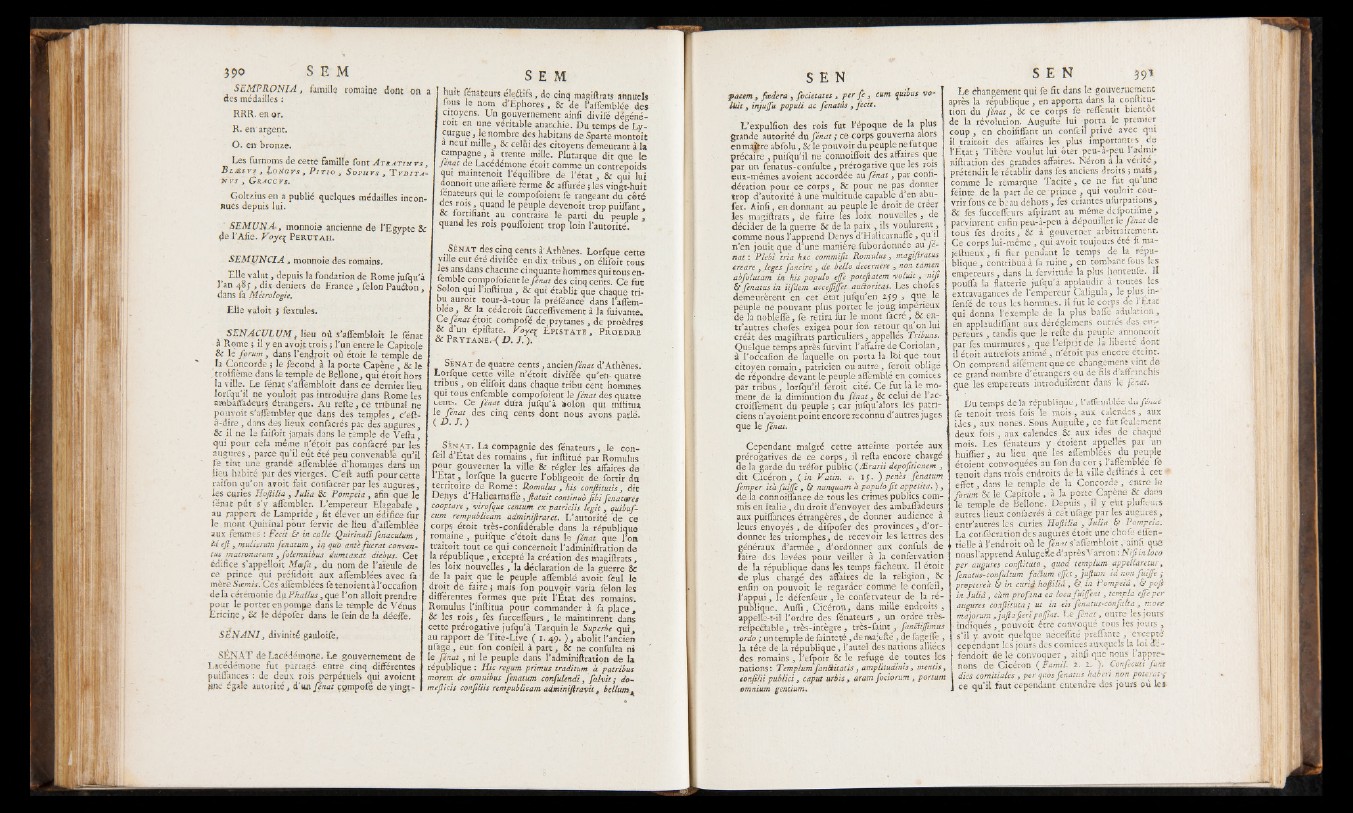 390 S E M
SEMPRONIA, famille romaine dont on a
des médailles :
RRR. en or.
R. en argent.
O. en bronze.
Les surnoms de cette famille sont ATRATINVS,
BLÆSVS, LONGVS, PITIO, SOPHVS, TVDITA-
NVS, GRACCVS.
Goltzius en a publié quelques médailles incon-
nues depuis lui.
SEMUNA, monnoie ancienne de l'Egypte &
de l'Asie. Voyez PERUTAH.
SEMUNCIA, monnoie des romains.
Elle valut, depuis la fondation de Rome jusqu'à
l'an 485, dix deniers de France, selon Paucton,
dans sa Métrologie.
Elle valoit 3 sextules.
SENACULUM, lieu où s'assembloit le sénat
à Rome ; il y en avoit trois ; l'un entre le Capitole
& le forum, dans l'endroit où étoit le temple de
la Concorde ; le second à la porte Capène, & le
troisième dans le temple de Bellone, qui étoit hors
la ville. Le sénat s'assembloit dans ce dernier lieu
lorsqu'il ne vouloit pas introduire dans Rome les
ambassadeurs étrangers. Au reste, ce tribunal ne
pouvoit s'assembler que dans des temples, c'est-
à-dire, dans des lieux consacrés par des augures,
& il ne le faisoit jamais dans le temple de Vesta,
qui pour cela même n'étoit pas consacré par les
augures, parce qu'il eût été peu convenable qu'il
se tînt une grande assemblée d'hommes dans un
lieu habité par des vierges. C'est aussi pour cette
raison qu'on avoit fait consacrer par les augures,
les curies Hostilia, Julia & Pompeia, afin que le
sénat pût s'y assembler. L'empereur Elagabale,
au rapport de Lampride, fit élever un édifice sur
le mont Quirinal pour servir de lieu d'assemblée
aux femmes : Fecit & in colle Quirinali senaculum,
id est, mulierum senatum, in quo antè fuerat conven-
tus matronarum, solemnibus dumtaxat diebus. Cet
édifice s'appelloit Mæsa, du nom de l'aïeule de
ce prince qui présidoit aux assemblées avec sa
mère Sæmis. Ces assemblées se tenoient à l'occasion
de la cérémonie du Phallus, que l'on alloit prendre
pour le porter en pompe dans le temple de Vénus
Ericine, & le déposer dans le sein de la déesse.
SÉNANI, divinité gauloise.
SÉNAT de Lacédémone. Le gouvernement de
Lacédémone fut partagé entre cinq différentes
puissances : de deux rois perpétuels qui avoient
une égale autorité, d'un sénat composé de vingt-
S E M
huit sénateurs électifs, de cinq magistrats annuels
sous le nom d'Ephores, & de l'assemblée des
citoyens. Un gouvernement ainsi divisé dégéné-
roit en une véritable anarchie. Du temps de Ly-
curgue, le nombre des habitans de Sparte montoit
à neuf mille, & celui des citoyens demeurant à la
campagne, à trente mille. Plutarque dit que le
sénat de Lacédémone étoit comme un contrepoids
qui maintenoit l'équilibre de l'état, & qui lui
donnoit une assiete ferme & assurée ; les vingt-huit
sénateurs qui le composoient se rangeant du côté
des rois, quand le peuple devenoit trop puissant,
& fortifiant au contraire le parti du peuple,
quand les rois poussoient trop loin l'autorité.
SÉNAT des cinq cents à Athènes. Lorsque cette
ville eut été divisée en dix tribus, on élisoit tous
les ans dans chacune cinquante hommes qui tous en-
semble composoient le sénat des cinq cents. Ce fut
Solon qui l'institua, & qui établit que chaque tri-
bu auroit tour-à-tour la préséance dans l'assem-
blée, & la céderoit successivement à la suivante.
Ce sénat étoit composé de prytanes, de proèdres
& d'un épistate. Voyez EPISTATE, PROEDRE
& PRYTANE. ( D. J. ).
SÉNAT de quatre cents, ancien sénat d'Athènes.
Lorsque cette ville n'étoit divisée qu'en quatre
tribus, on élisoit dans chaque tribu cent hommes
qui tous ensemble composoient le sénat des quatre
cents. Ce sénat dura jusqu'à solon qui institua
le sénat des cinq cents dont nous avons parlé.
( D. J. )
SÉNAT. La compagnie des sénateurs, le con-
seil d'Etat des romains, fut institué par Romulus
pour gouverner la ville & régler les affaires de
l'Etat, lorsque la guerre l'obligeoit de sortir du
territoire de Rome : Romulus, his constitutis, dit
Denys d'Halicarnasse, statuit continuò sibi senatores
cooptare, virosque centum ex patriciis legit, quibus-
cum rempublicam administraret. L'autorité de ce
corps étoit très-considérable dans la république
romaine, puisque c'étoit dans le sénat que l'on
traitoit tout ce qui concernoit l'administration de
la république, excepté la création des magistrats,
les loix nouvelles, la déclaration de la guerre &
de la paix que le peuple assemblé avoit seul le
droit de faire ; mais son pouvoir varia selon les
différentes formes que prit l'Etat des romains.
Romulus l'institua pour commander à sa place,
& les rois, ses successeurs, le maintinrent dans
cette prérogative jusqu'à Tarquin le Superbe qui,
au rapport de Tite-Live ( 1. 49. ), abolit l'ancien
usage, eut son conseil à part, & ne consulta ni
le sénat, ni le peuple dans l'administration de la
république : Hic regum primus traditum à patribus
morem de omnibus senatum consulendi, solvit ; do-
mesticis consiliis rempublicam administravit, bellum,
S E N
pacem, fœdera, societates, per se, cum quibus vo-
luit, injussu populi ac senatûs, fecit.
L'expulsion des rois fut l'époque de la plus
grande autorité du sénat ; ce corps gouverna alors
en maître absolu, & le pouvoir du peuple ne fut que
précaire, puisqu'il ne connoissoit des affaires que
par un senatus-consulte, prérogative que les rois
eux-mêmes avoient accordée au sénat, par consi-
dération pour ce corps, & pour ne pas donner
trop d'autorité à une multitude capable d'en abu-
ser. Ainsi, en donnant au peuple le droit de créer
les magistrats, de faire les loix nouvelles, de
décider de la guerre & de la paix, ils voulurent,
comme nous l'apprend Denys d'Halicarnasse, qu'il
n'en jouit que d'une manière subordonnée au sé-
nat : Plebi tria hæc commisit Romulus, magistratus
creare, leges sancire, de bello decernere, non tamen
absolutam in his populo esse potestatem voluit, nisi
& senatus in iisdem accessisset auctoritas. Les choses
demeurèrent en cet état jusqu'en 259, que le
peuple ne pouvant plus porter le joug impérieux
de la noblesse, se retira sur le mont sacré, & en-
tr'autres choses exigea pour son retour qu'on lui
créât des magistrats particuliers, appellés Tribuns.
Quelque temps après survint l'affaire de Coriolan,
à l'occasion de laquelle on porta la loi que tout
citoyen romain, patricien ou autre, seroit obligé
de répondre devant le peuple assemblé en comices
par tribus, lorsqu'il seroit cité. Ce fut là le mo-
ment de la diminution du sénat, & celui de l'ac-
croissement du peuple ; car jusqu'alors les patri-
ciens n'avoient point encore reconnu d'autres juges
que le sénat.
Cependant malgré cette atteinte portée aux
prérogatives de ce corps, il resta encore chargé
de la garde du trésor public ( Ærarii depositionem,
dit Cicéron, ( in Vatin. c. 15. ) penès senatum
semper ità fuisse, & nunquam à populo sit appetita. ),
de la connoissance de tous les crimes publics com-
mis en italie, du droit d'envoyer des ambassadeurs
aux puissances étrangères, de donner audience à
leurs envoyés, de disposer des provinces, d'or-
donner les triomphes, de recevoir les lettres des
généraux d'armée, d'ordonner aux consuls de
faire des levées pour veiller à la conservation
de la république dans les temps fâcheux. Il étoit
de plus chargé des affaires de la religion, &
enfin on pouvoit le regarder comme le conseil,
l'appui, le défenseur, le conservateur de la ré-
publique. Aussi, Cicéron, dans mille endroits,
appelle-t-il l'ordre des sénateurs, un ordre très-
respectable, très-intègre, très-saint, sanctissimus
ordo ; un temple de sainteté, de majesté, de sagesse,
la tête de la république, l'autel des nations alliées
des romains, l'espoir & le refuge de toutes les
nations: Templum sanctitatis, amplitudinis, mentis,
consilii publici, caput urbis, aram sociorum, portum
omnium gentium.
S E N 391
Le changement qui se fit dans le gouvernement
après la république, en apporta dans la constitu-
tion du sénat, & ce corps se ressentit bientôt
de la révolution. Auguste lui porta le premier
coup, en choisissant un conseil privé avec qui
il traitoit des affaires les plus importantes de
l'Etat ; Tibère voulut lui ôter peu-à-peu l'admi-
nistration des grandes affaires. Néron à la vérité,
prétendit le rétablir dans ses anciens droits ; mais,
comme le remarque Tacite, ce ne fut qu'une
feinte de la part de ce prince, qui vouloit cou-
vrir sous ce beau dehors, ses criantes usurpations,
& ses successeurs aspirant au même despotisme,
parvinrent enfin peu-à-peu à dépouiller le sénat de
tous ses droits, & à gouverner arbitrairement.
Ce corps lui-même, qui avoit toujours été si ma-
jestueux, si fier pendant le temps de la répu-
blique, contribua à sa ruine, en tombant sous les
empereurs, dans la servitude la plus honteuse. Il
poussa la flatterie jusqu'à applaudir à toutes les
extravagances de l'empereur Caligula, le plus in-
sensé de tous les hommes. Il fut le corps de l'Etat
qui donna l'exemple de la plus basse adulation,
en applaudissant aux déréglemens outrés des em-
pereurs, tandis que le reste du peuple annonçoit
par ses murmures, que l'esprit de la liberté dont
il étoit autrefois animé, n'étoit pas encore éteint.
On comprend aisément que ce changement vint de
ce grand nombre d'étrangers ou de fils d'affranchis
que les empereurs introduisirent dans le sénat.
Du temps de la république, l'assemblée du sénat
se tenoit trois fois le mois, aux calendes, aux
ides, aux nones. Sous Auguste, ce fut seulement
deux fois, aux calendes & aux ides de chaque
mois. Les sénateurs y étoient appellés par un
huissier, au lieu que les assemblées du peuple
étoient convoquées au son du cor ; l'assemblée se
tenoit dans trois endroits de la ville destinés à cet
effet, dans le temple de la Concorde, entre le
forum & le Capitole, à la porte Capène & dans
le temple de Bellone. Depuis, il y eut plusieurs
autres lieux consacrés à cet usage par les augures,
entr'autres les curies Hostilia, Julia & Pompeia.
La consécration des augures étoit une chose essen-
tielle à l'endroit où le sénat s'assembloit, ainsi que
nous l'apprend Aulugelle d'après Varron : Nisi in loco
per augures constituto, quod templum appellaretur,
senatus-consultum factum esset, justum id non fuisse ;
proptereà & in curiâ hostiliâ, & in Pompeiâ, & post
in Juliâ, cùm profana ea loca fuissent, templa esse per
augures constituta ; ut in eis senatus-consulta, more
majorum, justa fieri possent. Le sénat, outre les jours
indiqués, pouvoit être convoqué tous les jours,
s'il y avoit quelque nécessité pressante, excepté
cependant les jours des comices auxquels la loi dé-
fendoit de le convoquer, ainsi que nous l'appre-
nons de Cicéron ( Famil. 2. 2. ). Consecuti sunt
dies comitiales, per quos senatus haberi non poterat ;
ce qu'il faut cependant entendre des jours où les